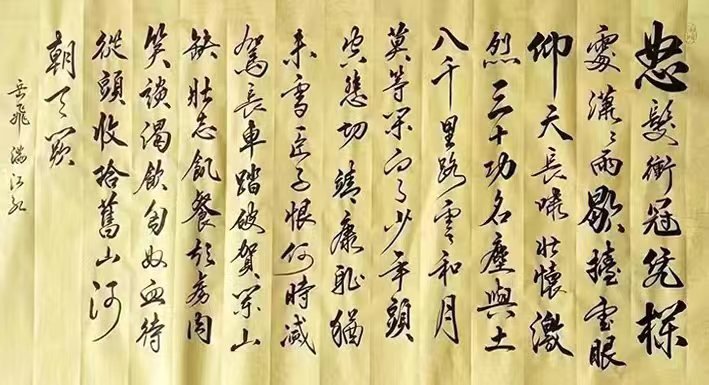 怒髮衝冠凭欄
處瀟〻雨歇擡望眼
仰天長嘯壯懷激
烈三十功名塵與土
八千里路雲和月
莫等閑白了少年頭
空悲切靖康恥猶
未雪臣子恨何時滅
駕長車踏破賀蘭山
缺壯志飢餐胡虜肉
笑談渴飲匈奴血待
從頭收拾舊山河
朝天闕
岳飛滿江紅